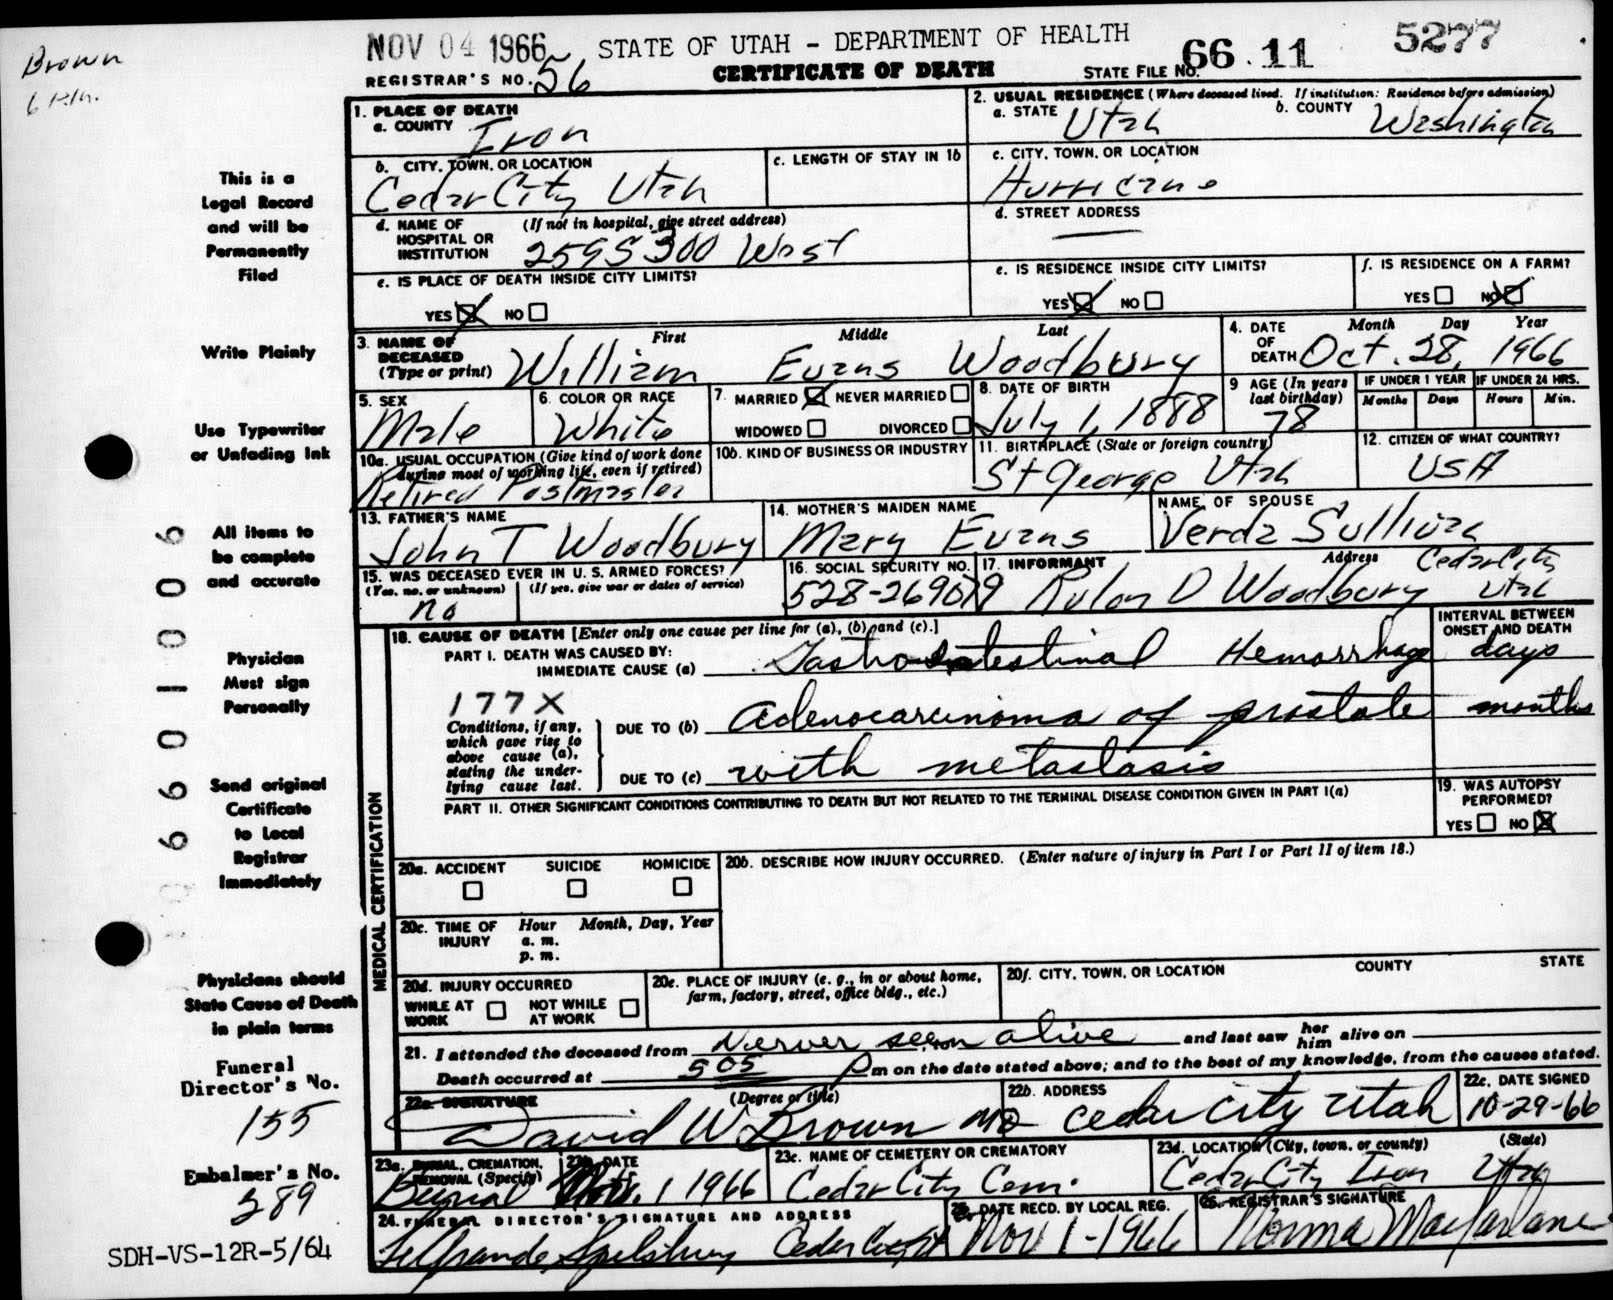 Brown
6 P.m.
NOV 04 1966
STATE OF UTAH - DEPARTMENT OF HEALTH
CERTIFICATE OF DEATH
REGISTRAR'S NO. 56
STATE FILE NO. 66 11 5277
1. PLACE OF DEATH
a. COUNTY Iron
2. USUAL RESIDENCE (Where deceased lived. If institution: Residence before admission)
a. STATE Utah
b. COUNTY Washington
b. CITY, TOWN, OR LOCATION
Cedar City Utah
c. LENGTH OF STAY IN 1b
c. CITY, TOWN, OR LOCATION
Hurricane
d. NAME OF HOSPITAL OR INSTITUTION
(If not in hospital, give street address)
259 S 300 West
d. STREET ADDRESS
e. IS PLACE OF DEATH INSIDE CITY LIMITS?
YES NO
e. IS RESIDENCE INSIDE CITY LIMITS?
YES NO
f. IS RESIDENCE ON A FARM?
YES NO
3. NAME OF DECEASED (Type or print)
First Middle Last
William Evans Woodbury
4. DATE OF DEATH
Month Day Year
Oct. 28, 1966
5. SEX
Male
6. COLOR OR RACE
White
7. MARRIED NEVER MARRIED
WIDOWED DIVORCED
8. DATE OF BIRTH
July 1, 1888
9 AGE (In years last birthday)
78
IF UNDER 1 YEAR
Months Days
IF UNDER 24 HRS.
Hours Min.
10a. USUAL OCCUPATION (Give kind of work done during most of working life, even if retired)
Retired Postmaster
10b. KIND OF BUSINESS OR INDUSTRY
11. BIRTHPLACE (State or foreign country)
St George Utah
12. CITIZEN OF WHAT COUNTRY?
USA
13. FATHER'S NAME
John T Woodbury
14. MOTHER'S MAIDEN NAME
Mary Evans
NAME OF SPOUSE
Verda Sullivan
15. WAS DECEASED EVER IN U. S. ARMED FORCES?
(Yes, no, or unknown) (If yes, give war or dates of service)
no
16. SOCIAL SECURITY NO.
528-269079
17. INFORMANT Address
Rulon D Woodbury Cedar City Utah
18. CAUSE OF DEATH [Enter only one cause per line for (a), (b), and (c).]
INTERVAL BETWEEN ONSET AND DEATH
PART I. DEATH WAS CAUSED BY:
IMMEDIATE CAUSE (a) Gastrointestinal Hemorrhage days
177X
Conditions, if any, which gave rise to above cause (a), stating the underlying cause last.
DUE TO (b) adenocarcinoma of prostate months
DUE TO (c) with metastasis
PART II. OTHER SIGNIFICANT CONDITIONS CONTRIBUTING TO DEATH BUT NOT RELATED TO THE TERMINAL DISEASE CONDITION GIVEN IN PART I(a)
19. WAS AUTOPSY PERFORMED?
YES NO
MEDICAL CERTIFICATION
20a. ACCIDENT SUICIDE HOMICIDE
20b. DESCRIBE HOW INJURY OCCURRED. (Enter nature of injury in Part I or Part II of item 18.)
20c. TIME OF INJURY Hour Month, Day, Year
a. m.
p. m.
20d. INJURY OCCURRED
WHILE AT WORK NOT WHILE AT WORK
20e. PLACE OF INJURY (e. g., in or about home, farm, factory, street, office bldg., etc.)
20f. CITY, TOWN, OR LOCATION COUNTY STATE
21. I attended the deceased from Never seen alive and last saw her him alive on
Death occurred at 5 05 P m on the date stated above; and to the best of my knowledge, from the causes stated.
22a. SIGNATURE (Degree or title)
David W Brown MD
22b. ADDRESS
Cedar City Utah
22c. DATE SIGNED
10-29-66
23a. BURIAL, CREMATION, REMOVAL (Specify)
Burial
23b. DATE
Nov. 1 1966
23c. NAME OF CEMETERY OR CREMATORY
Cedar City Cem.
23d. LOCATION (City, town, or county) (State)
Cedar City Iron Utah
24. FUNERAL DIRECTOR'S SIGNATURE AND ADDRESS
LeGrande Spilsbury Cedar City Ut
25. DATE RECD. BY LOCAL REG.
Nov 1-1966
26. REGISTRAR'S SIGNATURE
Norma Macfarlane
This is a
Legal Record
and will be
Permanently
Filed
Write Plainly
Use Typewriter
or Unfading Ink
All items to
be complete
and accurate
Physician
Must sign
Personally
Send original
Certificate
to Local
Registrar
Immediately
Physicians should
State Cause of Death
in plain terms
Funeral
Director's No.
155
Embalmer's No.
389
SDH-VS-12R-5/64